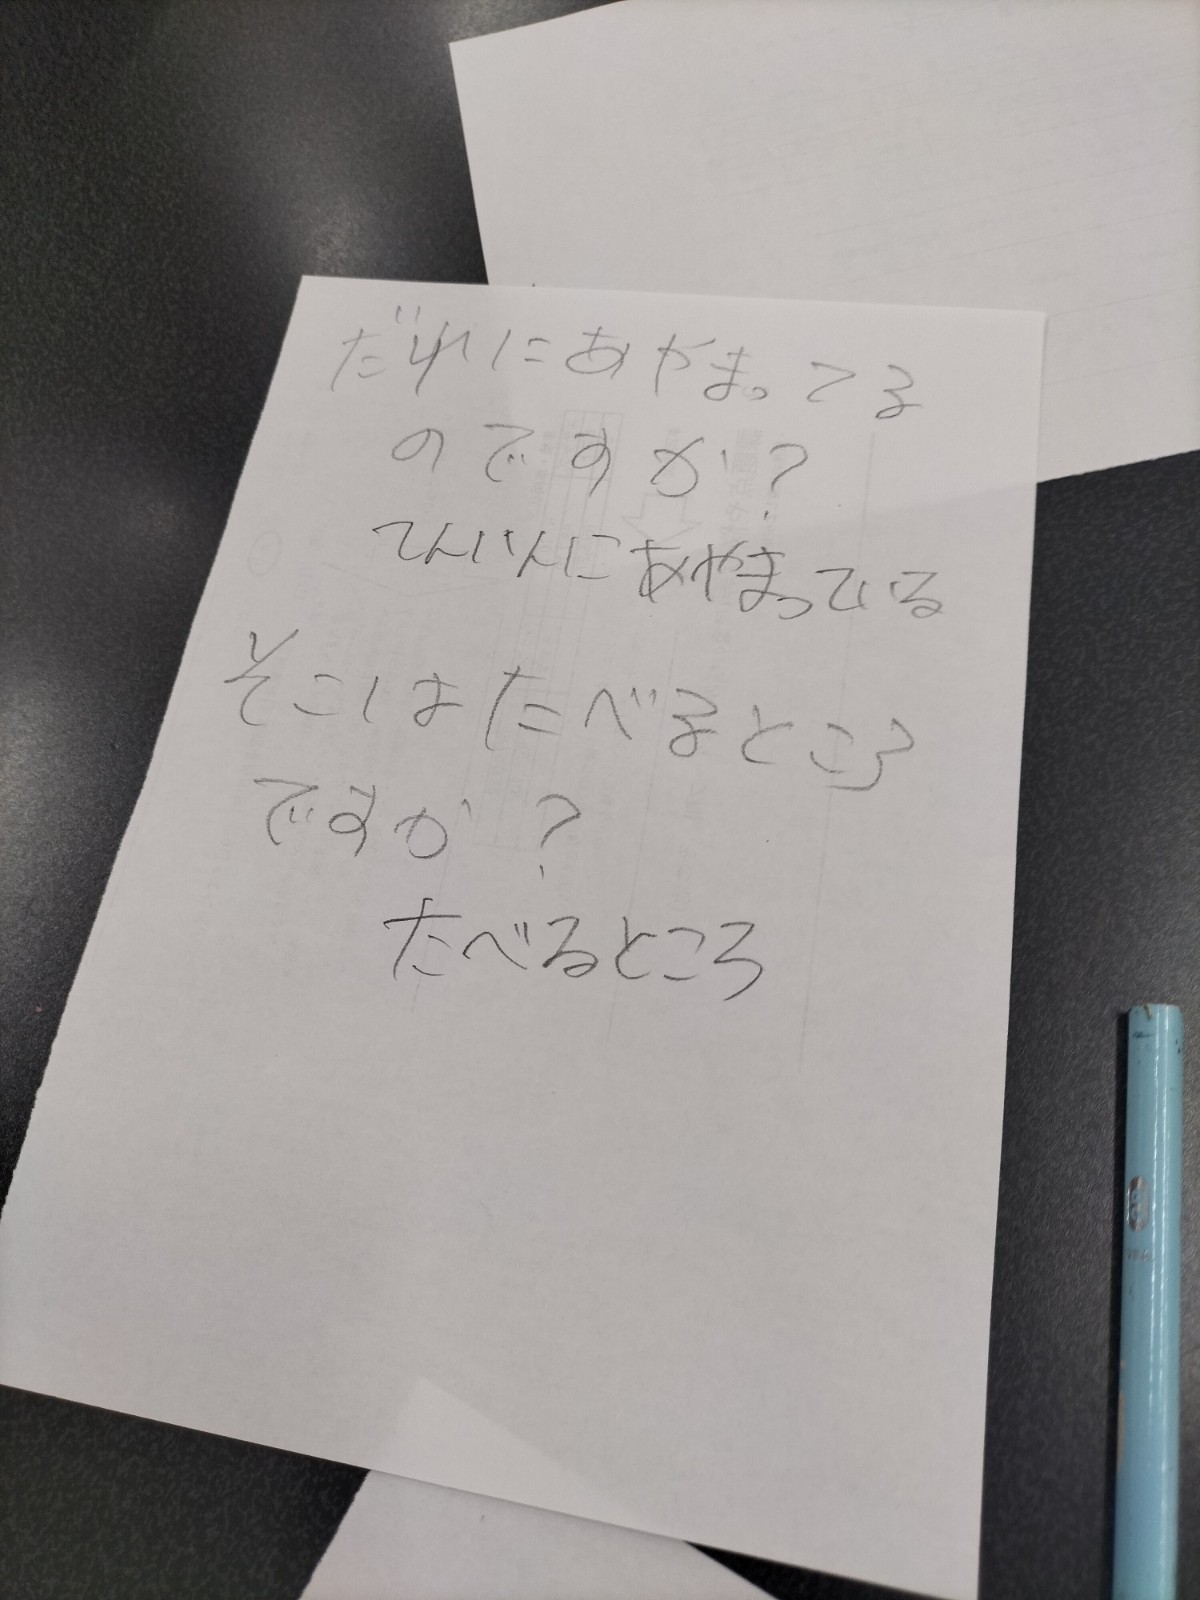 だれにあやまってる
のですか?
てんいんにあやまっている
そこはたべるところ
ですか?
たべるところ